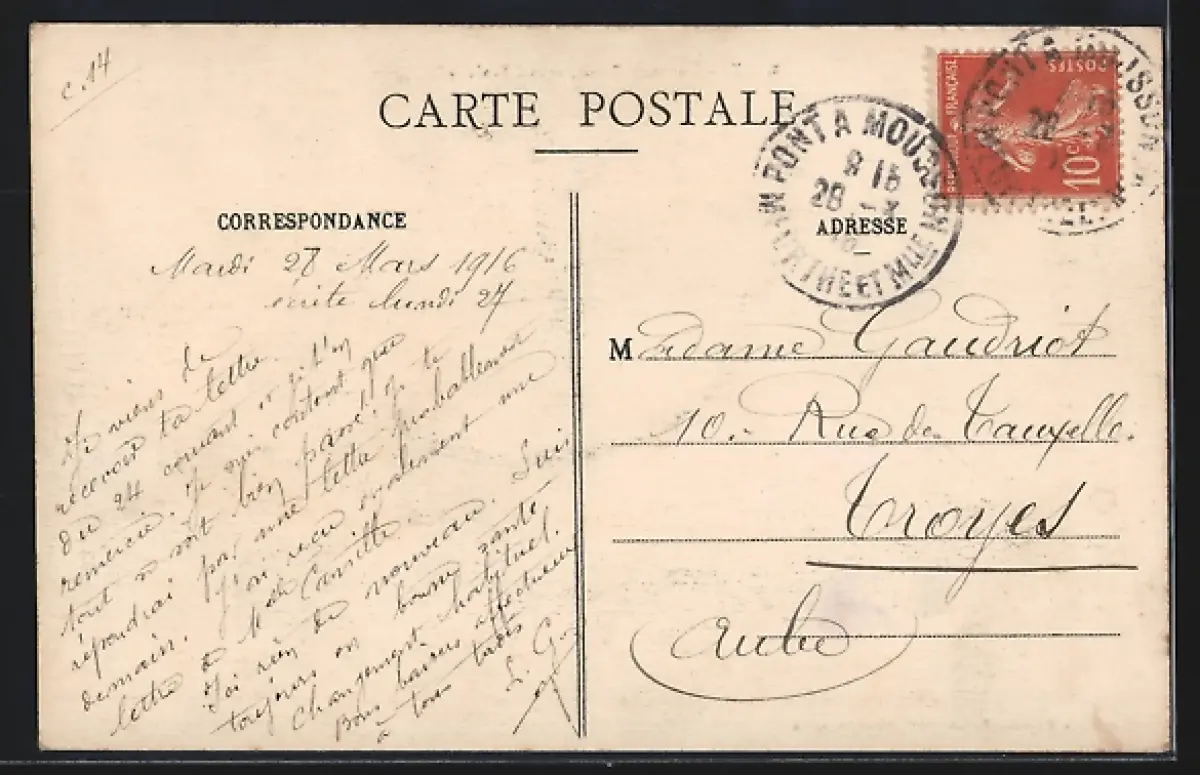 c. 14
CARTE POSTALE
CORRESPONDANCE
Mardi 28 Mars 1916
écrite lundi 27
Je viens de
recevoir ta lettre
du 24 courant et j t'en
remercie. Je suis content que
tout se soit bien passé. Je te
répondrai par une lettre probablement
demain. J'ai reçu également une
lettre de Mr
J'ai rien de nouveau. Suis
toujours en bonne santé
changement habituel.
Bons baisers affectueux
à tous
L. G.
REPUBLIQUE FRANÇAISE
POSTES
10c
PONT A MOUSSON
8 15
28 -3
16
MEURTHE ET MLLE
ADRESSE
Madame Gaudriot
10. Rue de
Troyes
Aube